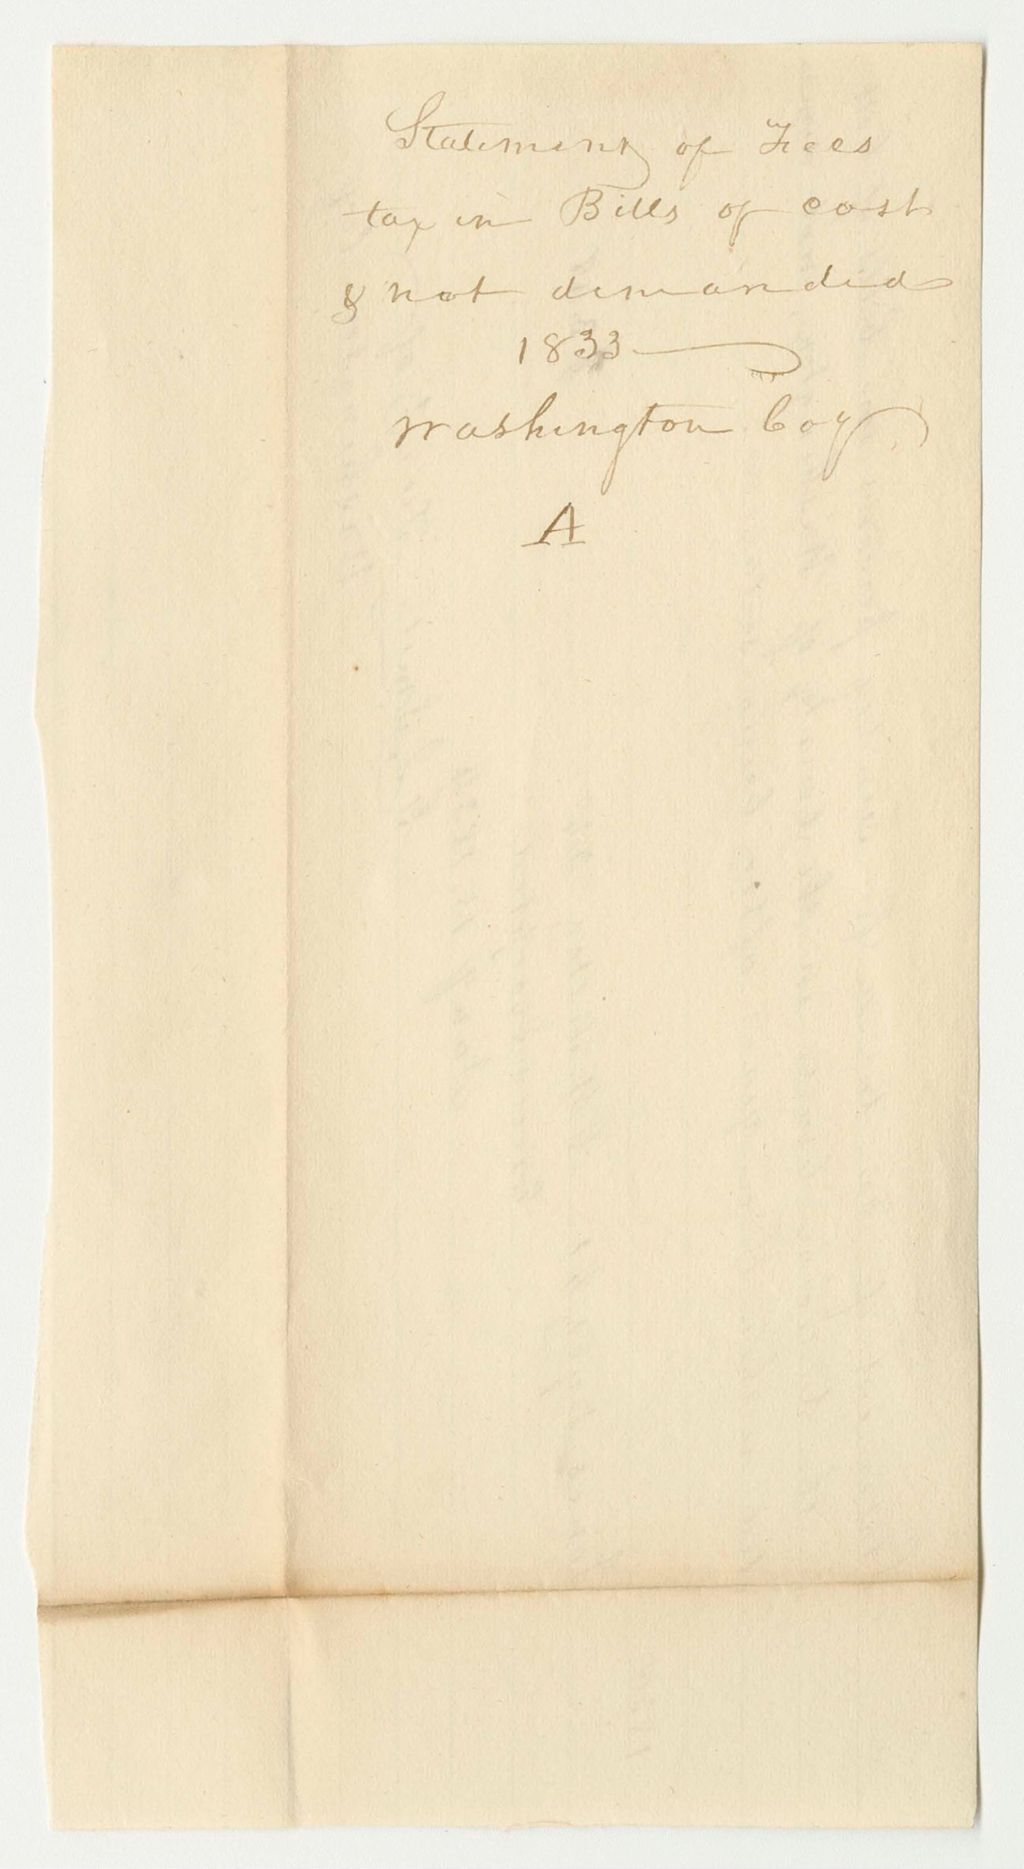 Statement of Fees
tax in Bills of cost
& not demanded
1833
Washington Coy
A